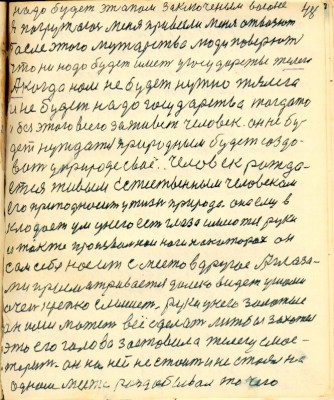 48
надо будет этапом заключенным вагоне
я погружался меня привезли меня отвезют
После этого мучарства люди повернют
что ни надо будет иметь у государства телеги
А когда нам не будет нужно телега
и не будет надо государства тогда то
и без этого всего заживет человек. он не бу-
дет нуждатся природным будет создо-
вать у природе своё.. Человек рожда-
ется живым естественным человеком
его преподносит у жизнь природа. она ему в
кладает ум у него есть глаза имеются руки
и также произвольном ноги на которых он
сам себя носит с места в другое. А глаза-
ми присматривается далеко видет ушами
очень крепко слышит. руки у него золотые
он ими может всё сделат лишь бы захотел
это его голова заставила телегу смас-
терить. он на ней не стоит и не стоял на
одном месте раздобывал то чего